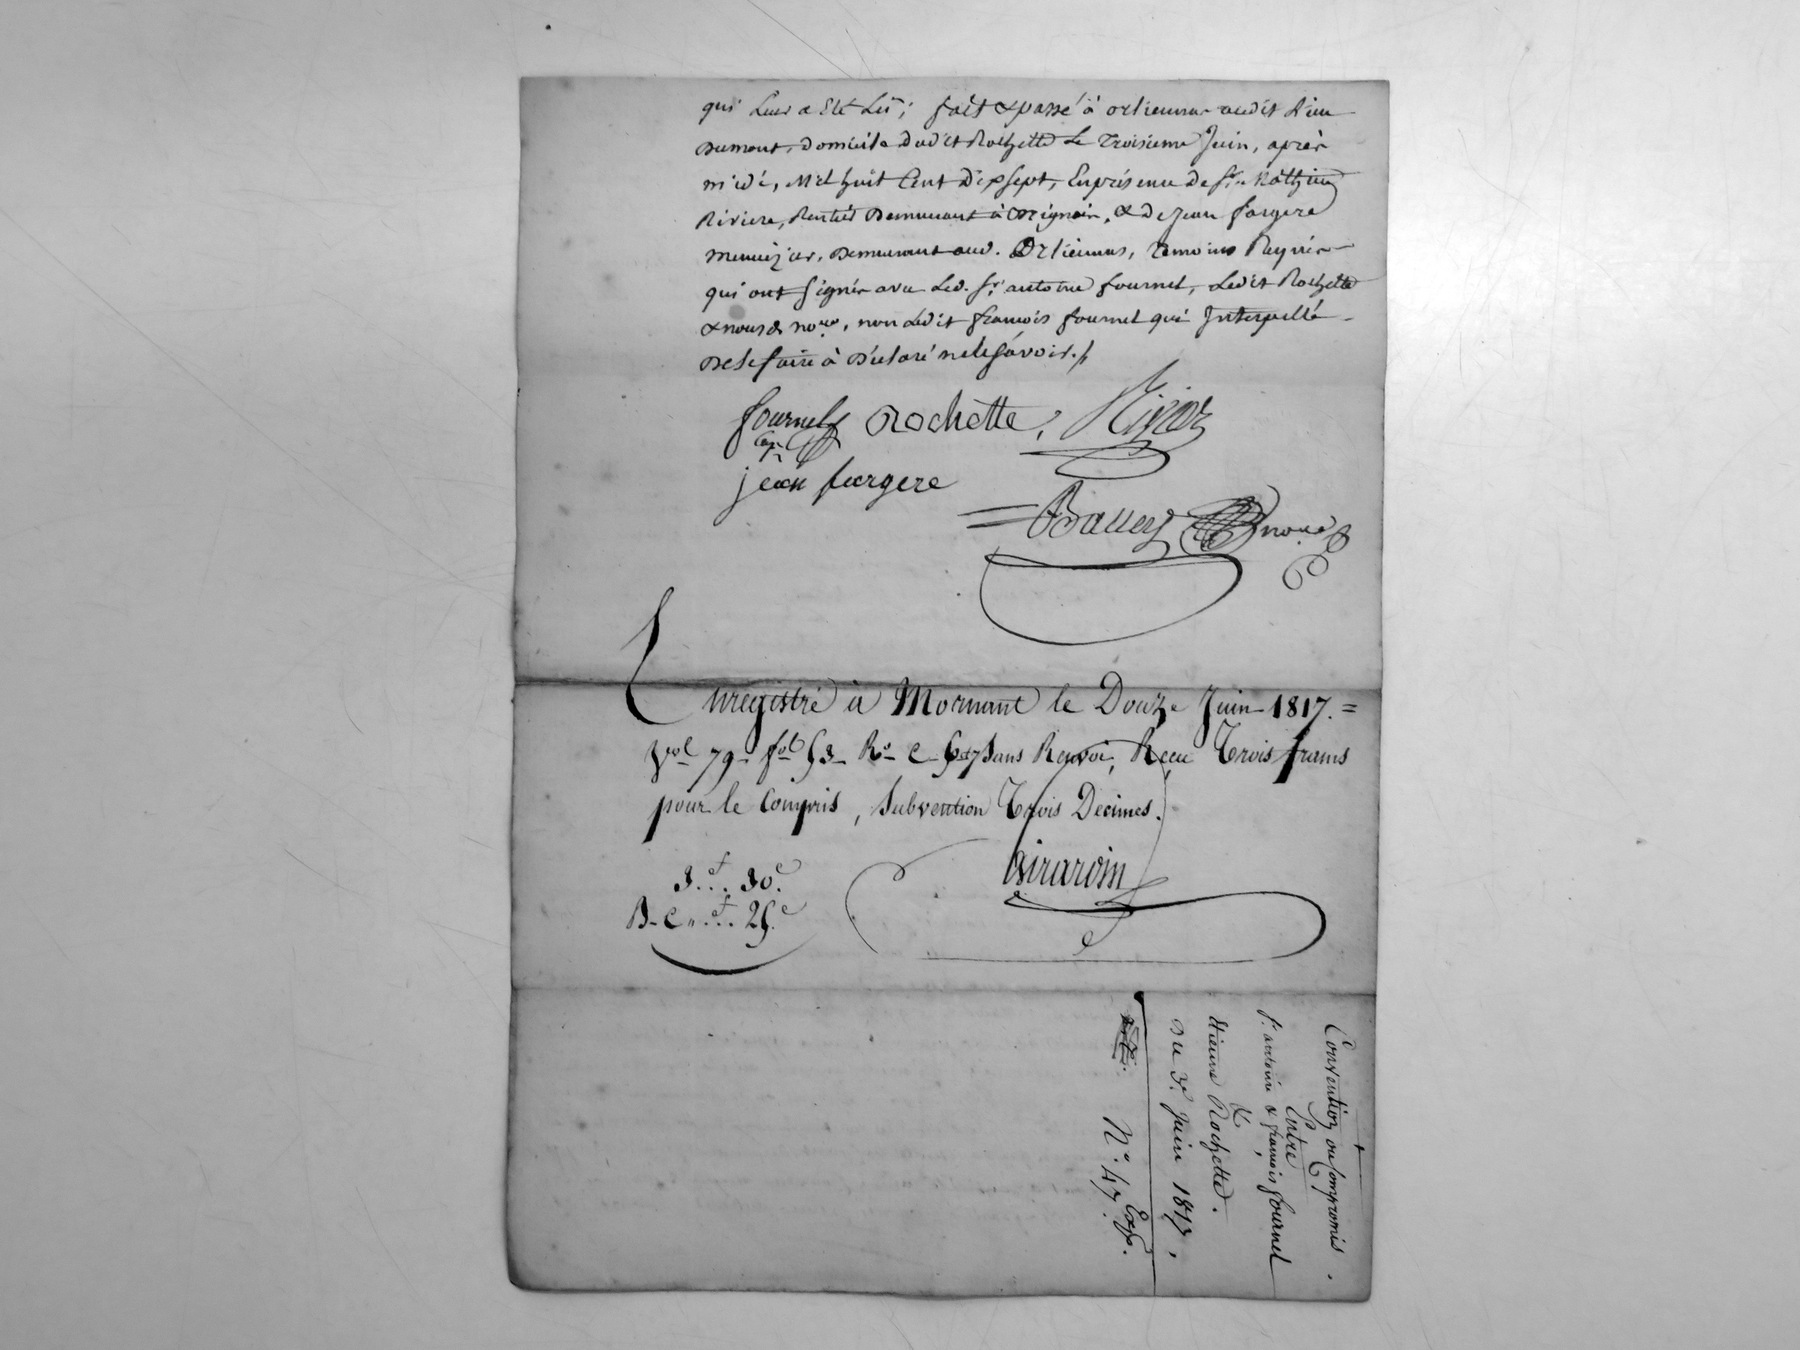 qui Leur a Eté Lû; fait & passé à orlienas audit Lieu
Dumont, domicile dudit Rochette Le Troisieme Juin, après
midi, Mil huit Cent Dix Sept, En présence de Sr. Mathieu
Riviere, Rentier Demeurant à orignain, & de Jean fargere
Menuizier, Demeurant aud. Orliennas, Temoins Requis
qui ont signés avec Led. Sr. antoine fournel, Ledit Rochette
& nousd. nore, non Ledit françois fournel qui Interpellé
De Le faire à Déclaré ne le savoir./
fournel Rochette, Rivier
jean fargere
Balley nore
Enregistré à Mornant le Douze Juin 1817. =
vol. 79 fol. 53 Ro. C. 6 et 7 Sans Renvoi, Recu Trois francs
pour le Compris, Subvention Trois Decimes.
3.f.. 30.c
D. C... f.. 25.c
Girardin
Convention ou Compromis.
Entre
Sr. antoine & françois fournel
&
Etienne Rochette.
Du 3e. Juin 1817,
N°. 47. Exp.